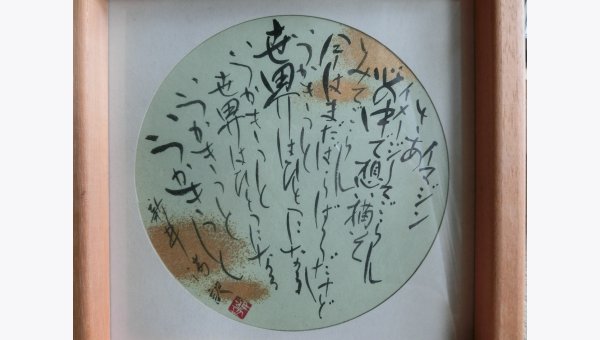 イマジン
さあ
イメージしてごらん
心の中で想い描いて
みてごらん
今はまだばらばらだけど
いつかきっと
世界はひとつになる
いつかきっと
世界はひとつになる
いつかきっと
いつかきっと
新井 満